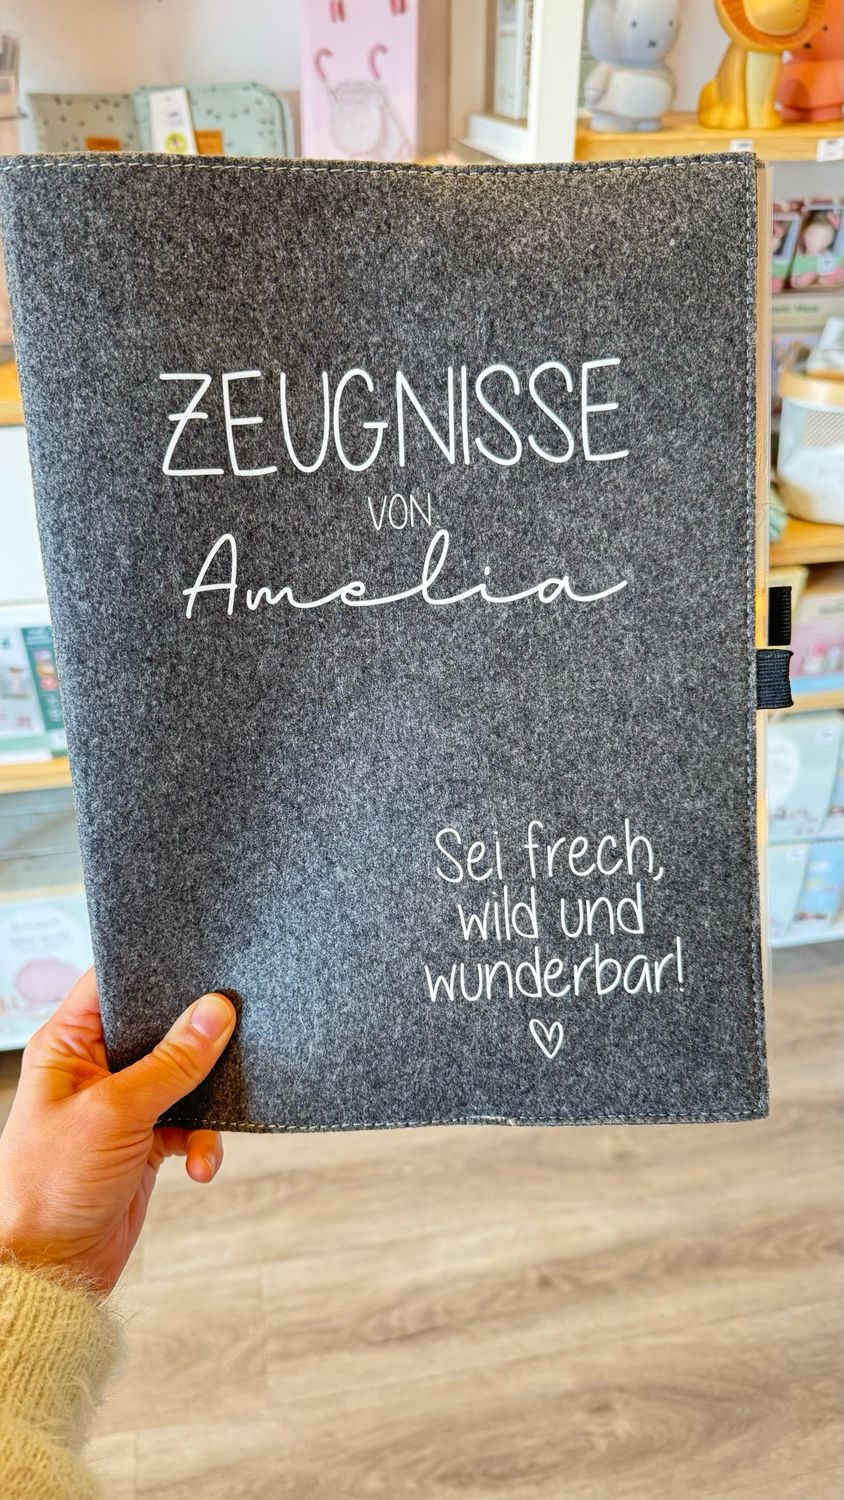 ZEUGNISSE
VON
Amelia
Sei frech,
wild und
wunderbar!